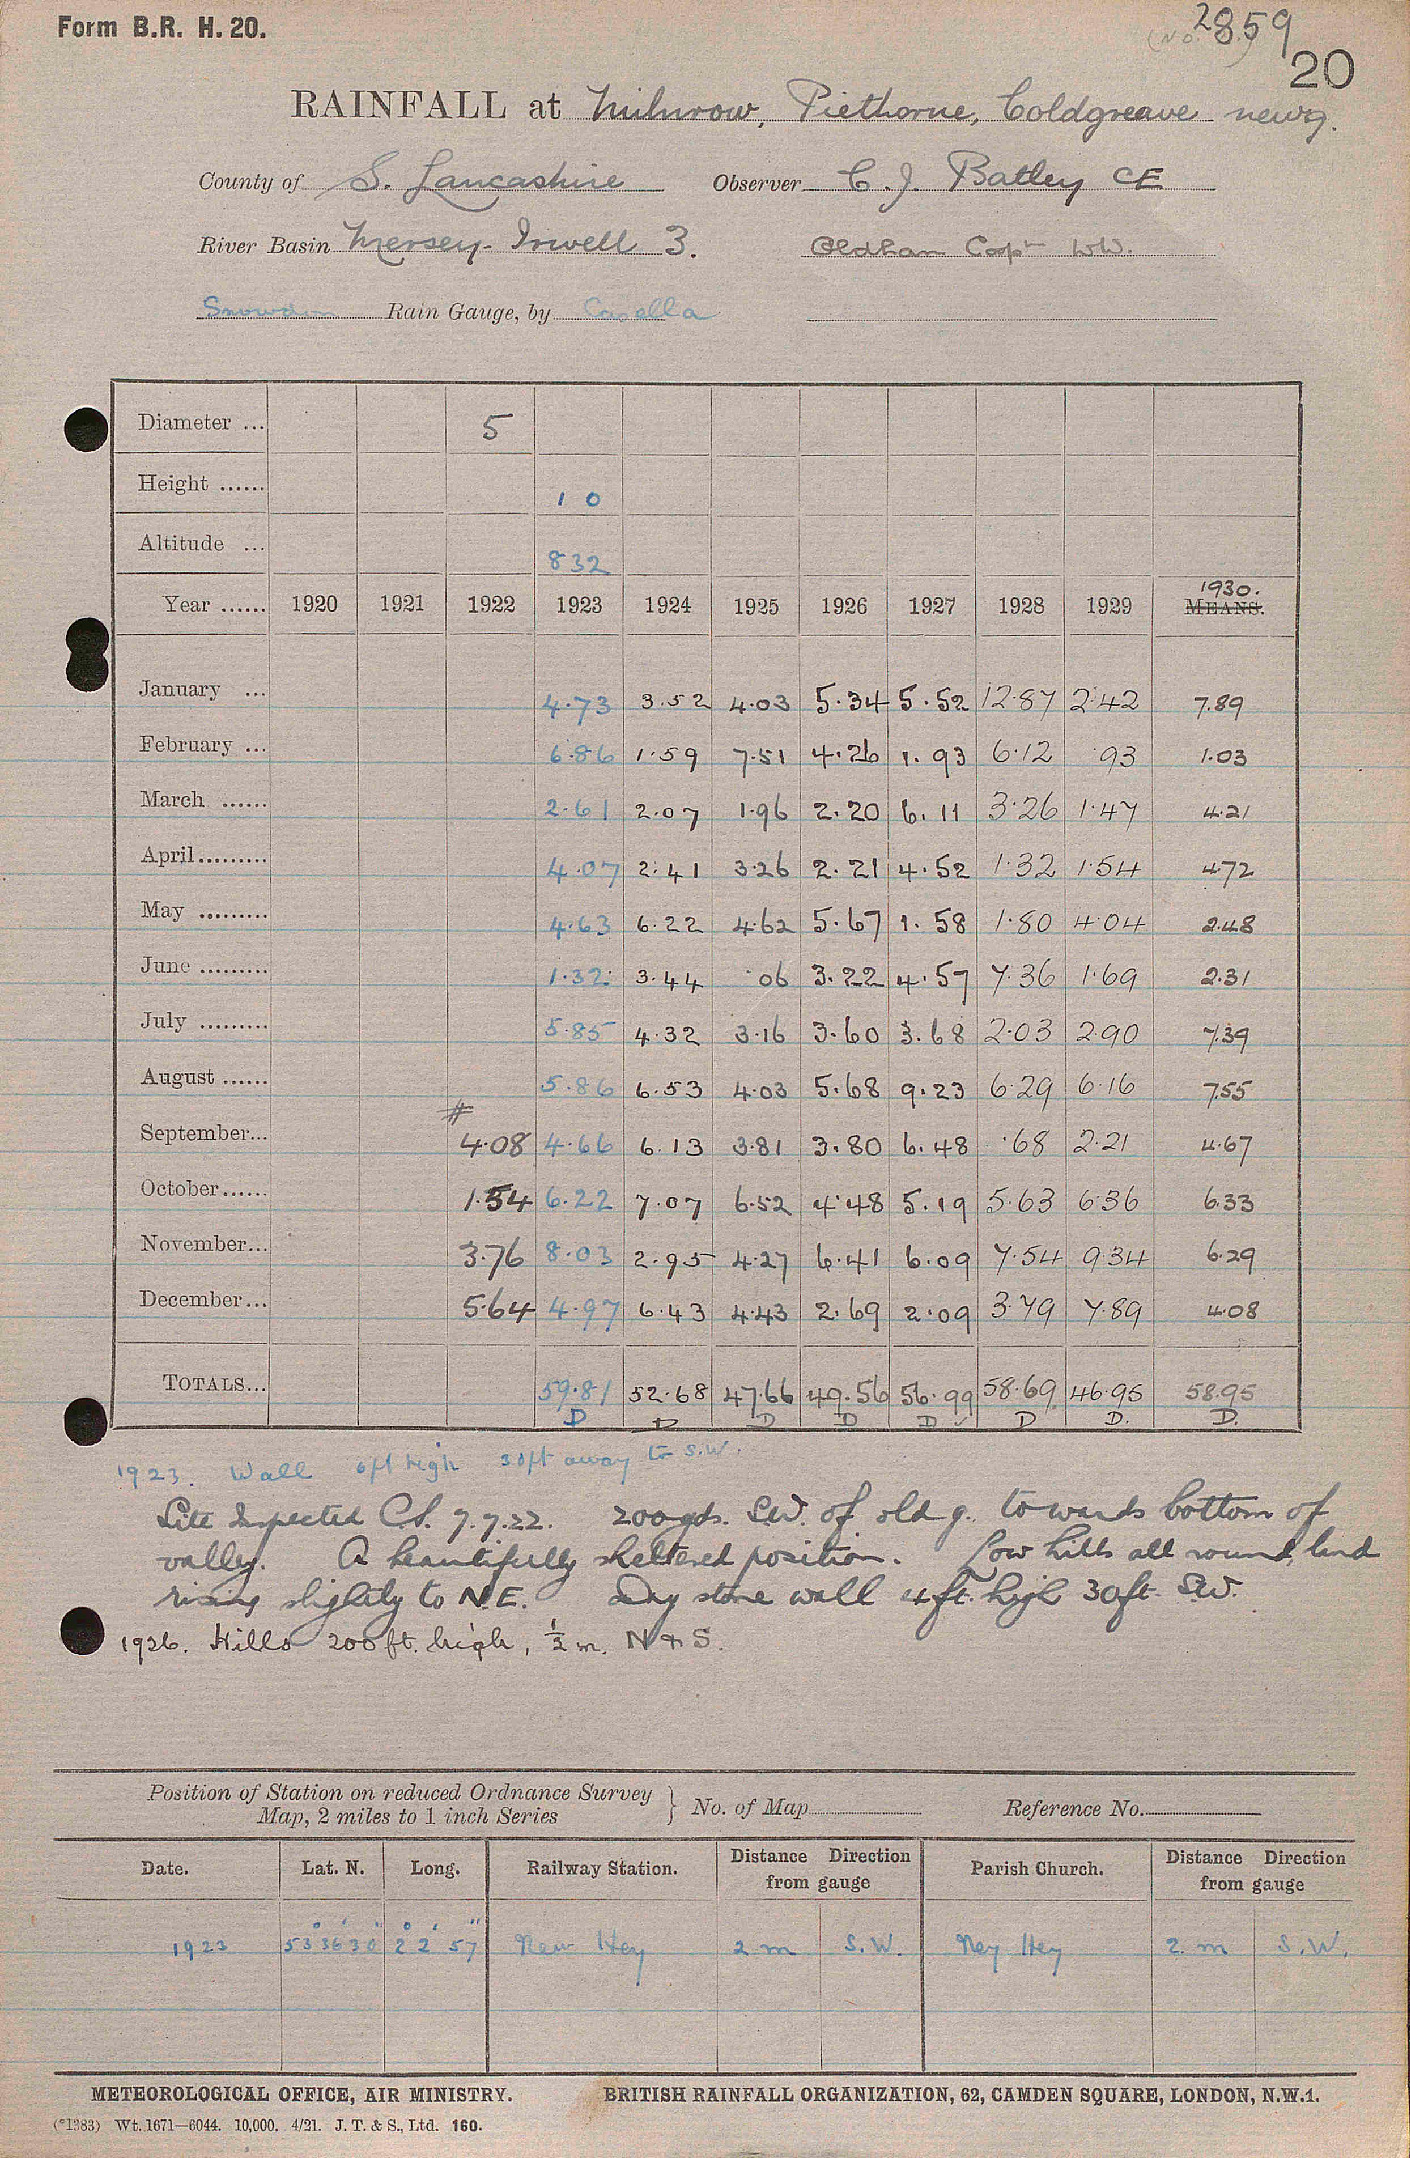 Form B.R. H. 20.
(No. 2859)
20
RAINFALL at Milnrow, Piethorne, Coldgreave new g.
County of S. Lancashire Observer C. J. Batley CE
River Basin Mersey - Irwell 3. Oldham Copn WW.
Snowdon Rain Gauge, by Casella
Diameter ... 5
Height ...... 1 0
Altitude ... 832
1930.
Year ...... 1920 1921 1922 1923 1924 1925 1926 1927 1928 1929 MEANS.
January ... 4.73 3.52 4.03 5.34 5.52 12.87 2.42 7.89
February ... 6.86 1.59 7.51 4.26 1.93 6.12 .93 1.03
March ...... 2.61 2.07 1.96 2.20 6.11 3.26 1.47 4.21
April......... 4.07 2.41 3.26 2.21 4.52 1.32 1.54 4.72
May ......... 4.63 6.22 4.62 5.67 1.58 1.80 4.04 2.48
June ......... 1.32 3.44 .06 3.22 4.57 7.36 1.69 2.31
July ......... 5.85 4.32 3.16 3.60 3.68 2.03 2.90 7.39
August ...... 5.86 6.53 4.03 5.68 9.23 6.29 6.16 7.55
#
September... 4.08 4.66 6.13 3.81 3.80 6.48 .68 2.21 4.67
October...... 1.54 6.22 7.07 6.52 4.48 5.19 5.63 6.36 6.33
November... 3.76 8.03 2.95 4.27 6.41 6.09 7.54 9.34 6.29
December... 5.64 4.97 6.43 4.43 2.69 2.09 3.79 7.89 4.08
TOTALS... 59.81 52.68 47.66 49.56 56.99 58.69 46.95 58.95
D D D D D ✓ D D. D.
1923. Wall 6ft high 30ft away to S.W.
Site Inspected C.S. 7.7.22. 200yds. S.W. of old g. towards bottom of
valley. A beautifully sheltered position. Low hills all round, land
rising slightly to N.E. Dry stone wall 4ft. high 30ft. S.W.
1926. Hills 200ft. high, ½ m. N & S.
Position of Station on reduced Ordnance Survey
Map, 2 miles to 1 inch Series } No. of Map Reference No.
Date. Lat. N. Long. Railway Station. Distance from gauge Direction Parish Church. Distance from gauge Direction
1923 53° 36' 30" 2° 2' 57" New Hey 2 m S.W. Ney Hey 2. m S.W.
METEOROLOGICAL OFFICE, AIR MINISTRY. BRITISH RAINFALL ORGANIZATION, 62, CAMDEN SQUARE, LONDON, N.W.1.
(*1383) Wt. 1671—6044. 10,000. 4/21. J. T. & S., Ltd. 160.